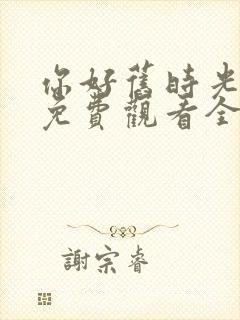 你好舊時光
免費觀看全
謝宗睿